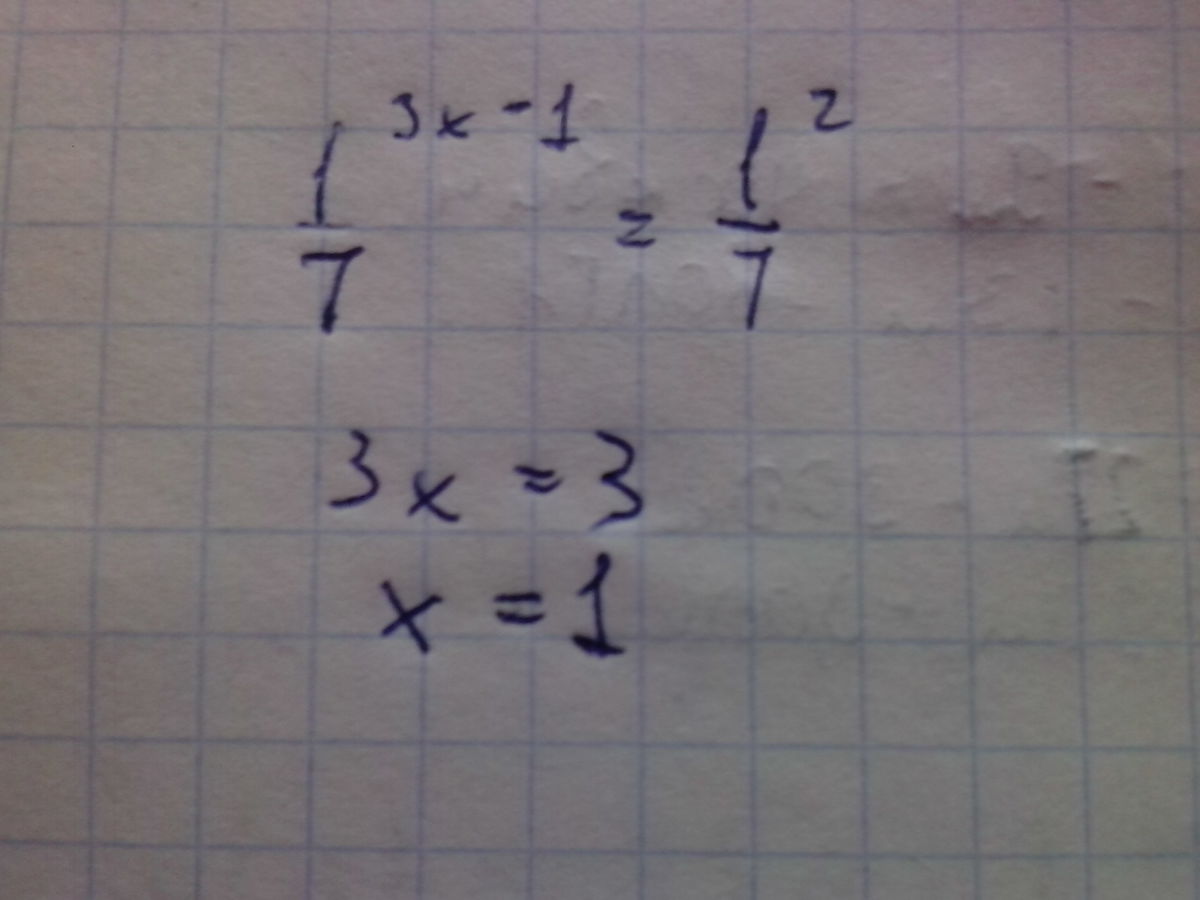 1/7^(3x-1) = 1/7^2
3x = 3
x = 1